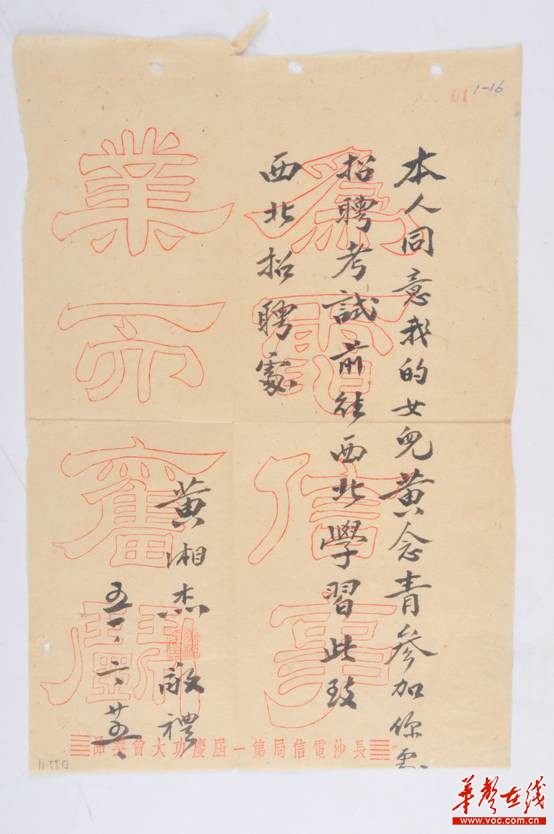 1-16
本人同意我的女兒黄念青参加你處
招聘考試前往西北學習此致
西北招聘處
黄湘杰敬禮
五一、六、廿五、
為電信事
業而奮鬭
長沙電信局第一屆慶功大會
华声在线
www.voc.com.cn